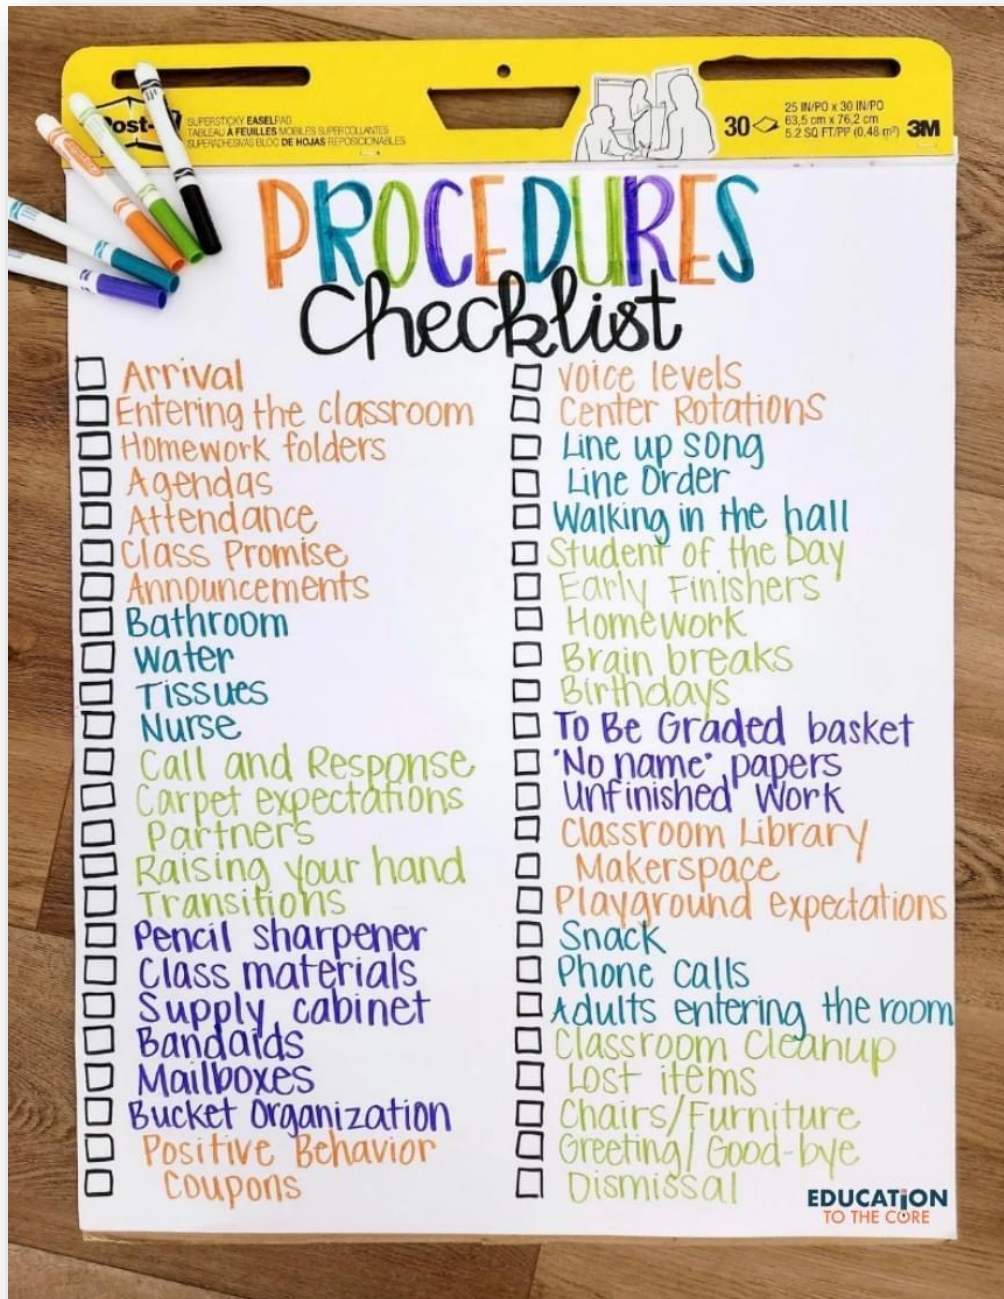 Post-it
SUPERSTICKY EASELPAD
TABLEAU À FEUILLES MOBILES SUPER COLLANTES
SUPERADHESIVAS BLOC DE HOJAS REPOSICIONABLES
30
25 IN/PO x 30 IN/PO
63,5 cm x 76,2 cm
5.2 SQ FT/PP (0,48 m²)
3M
PROCEDURES
Checklist
Arrival
Entering the classroom
Homework folders
Agendas
Attendance
Class Promise
Announcements
Bathroom
Water
Tissues
Nurse
Call and Response
Carpet expectations
Partners
Raising your hand
Transitions
Pencil sharpener
Class materials
Supply cabinet
Bandaids
Mailboxes
Bucket Organization
Positive Behavior
Coupons
Voice levels
Center Rotations
Line up song
Line Order
Walking in the hall
Student of the Day
Early Finishers
Homework
Brain breaks
Birthdays
To Be Graded basket
"No name" papers
Unfinished Work
Classroom Library
Makerspace
Playground expectations
Snack
Phone Calls
Adults entering the room
Classroom Cleanup
Lost items
Chairs/Furniture
Greeting/Good-bye
Dismissal
EDUCATION
TO THE CORE